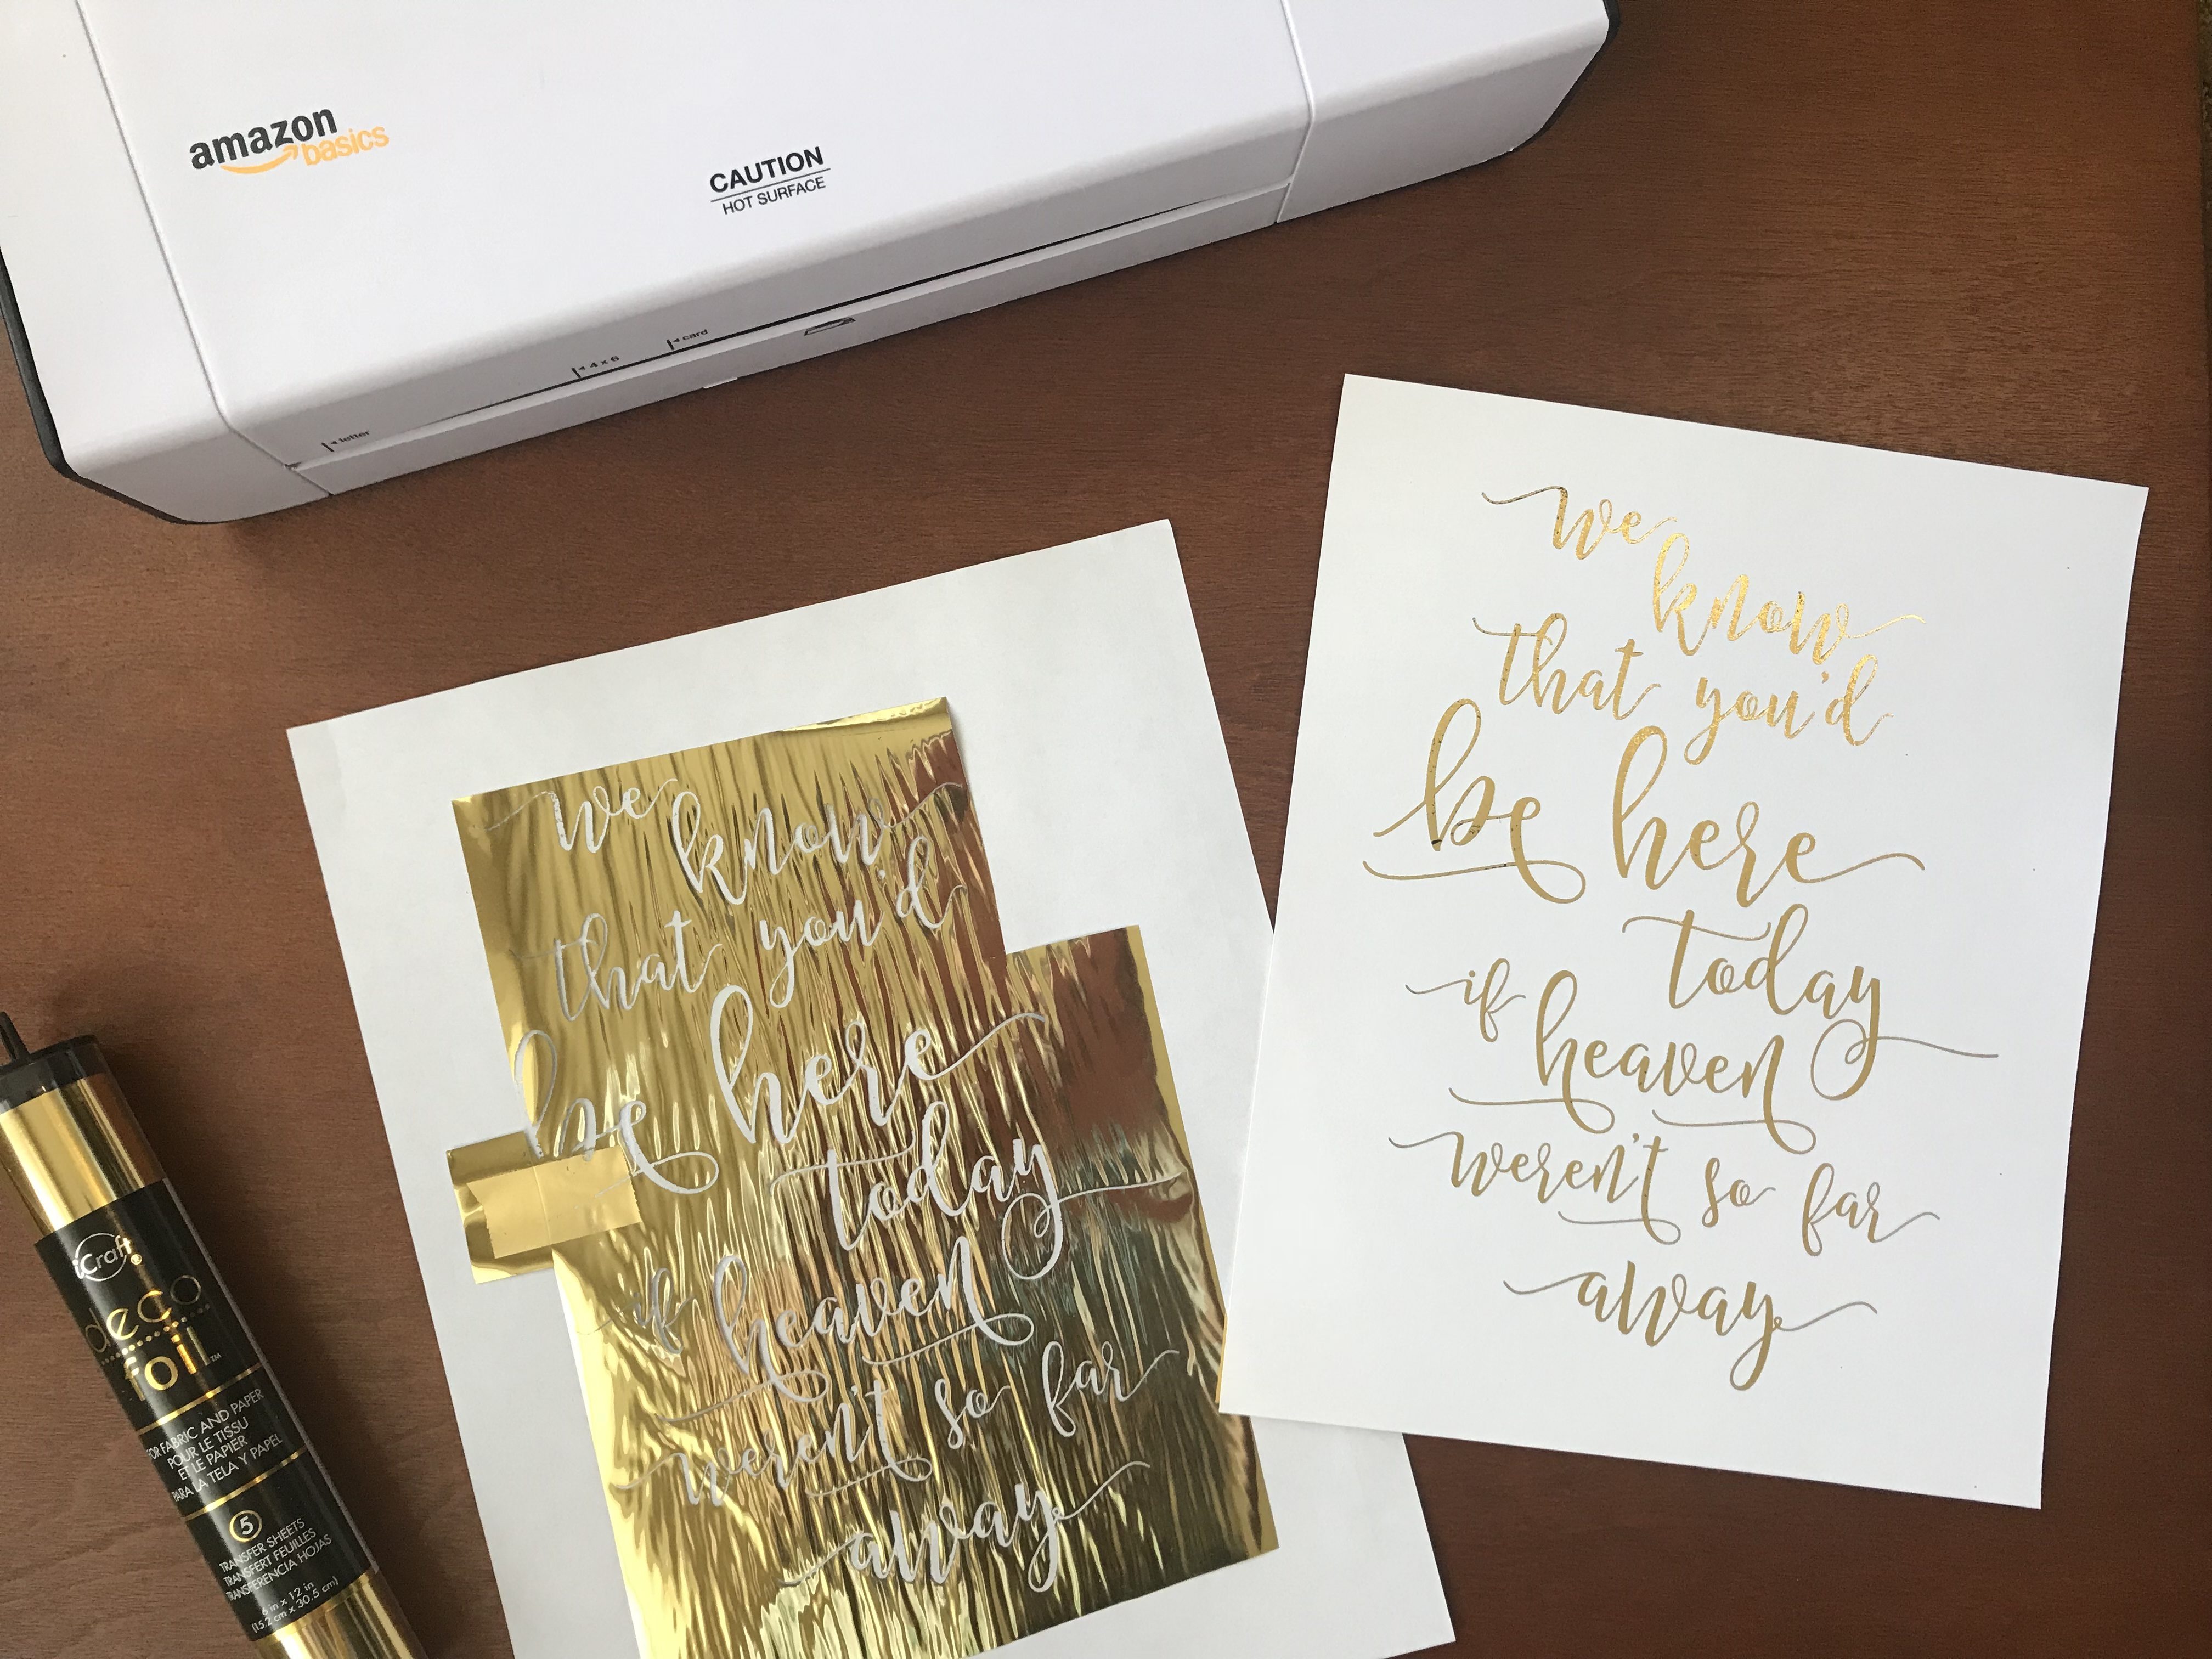 amazon
basics
CAUTION
HOT SURFACE
letter
4 x 6
card
we
know
that you'd
be here
today
if heaven
weren't so far
away
we
know
that you'd
be here
today
if heaven
weren't so far
away
iCraft®
deco
foil™
FOR FABRIC AND PAPER
POUR LE TISSU
ET LE PAPIER
PARA LA TELA Y PAPEL
5
TRANSFER SHEETS
TRANSFERT FEUILLES
TRANSFERENCIA HOJAS
6 in x 12 in
(15.2 cm x 30.5 cm)